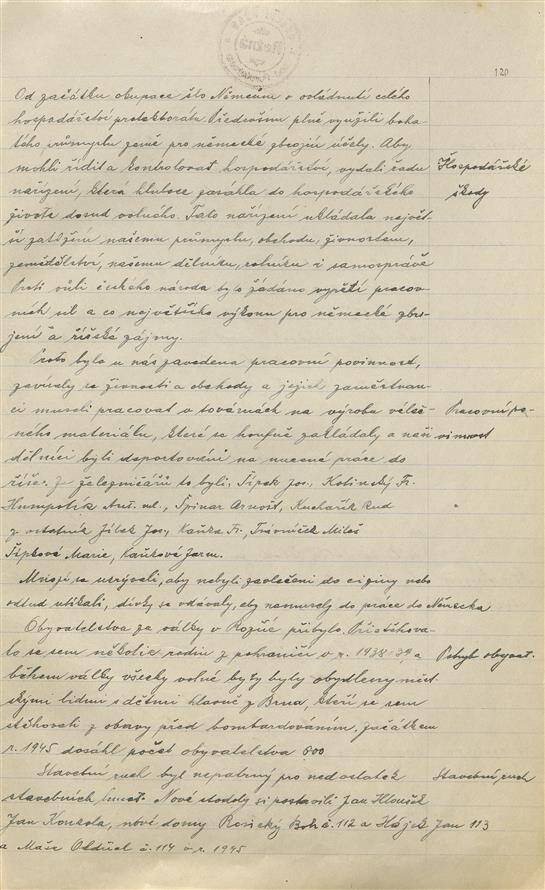 120
Od začátku okupace šlo Němcům o ovládnutí celého
hospodářství protektorátu. Především plně využili boha-
tého průmyslu země pro německé zbrojní účely. Aby
mohli řídit a kontrolovat hospodářství, vydali řadu
Hospodářské
nařízení, která hluboce zasáhla do hospodářského
škody
života dosud volného. Tato nařízení ukládala největ-
ší zatížení našemu průmyslu, obchodu, živnostem,
zemědělství, našemu dělníku, rolníku i samosprávě
Proti vůli českého národa bylo žádáno vypětí pracov-
ních sil a co největšího výkonu pro německé zbro-
jení a říšské zájmy.
Proto byla u nás zavedena pracovní povinnost,
zavíraly se živnosti a obchody a jejich zaměstnan-
ci museli pracovat v továrnách na výrobu váleč-
Pracovní po-
ného materiálu, které se houfně zakládaly a naši
vinnost
dělníci byli deportováni na nucené práce do
říše. Ze železničářů to byli, Šípek Jos., Kotinský Fr.
Humpolík Ant. ml., Špinar Arnošt, Kuchařík Rud
z ostatních Jíbek Jos., Kaňka Fr., Trávníček Miloš
Šípková Marie, Kaňková Jarm.
Mnozí se ukrývali, aby nebyli zavlečeni do ciziny nebo
odtud utíkali, dívky se vdávaly, aby nemusely do práce do Německa
Obyvatelstva za války v přibylo. Přistěhova-
lo se sem několik rodin z pohraničí v r. 1938-39 a
Pohyb obyvat.
během války všecky volné byty byly obydleny měst
skými lidmi s dětmi hlavně z Brna, kteří se sem
stěhovali z obavy před bombardováním, začátkem
r. 1945 dosáhl počet obyvatelstva 600
Stavební ruch byl nepatrný pro nedostatek
Stavební ruch
stavebních hmot. Nové stodoly si postavili Jan Hloušek
Jan Konzola, nové domy Rosický Boh č. 112 a Hájek Jan 113
a Máša Oldřich č. 114 v r. 1945